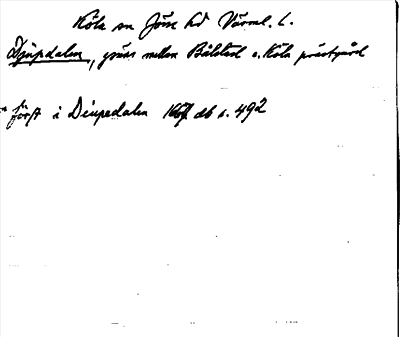 Köla sn Jösse hd Värml. l.
Djupedalen, gräns mellan Bålstad o. Köla prästgård
först i Diupedalen db s. 492